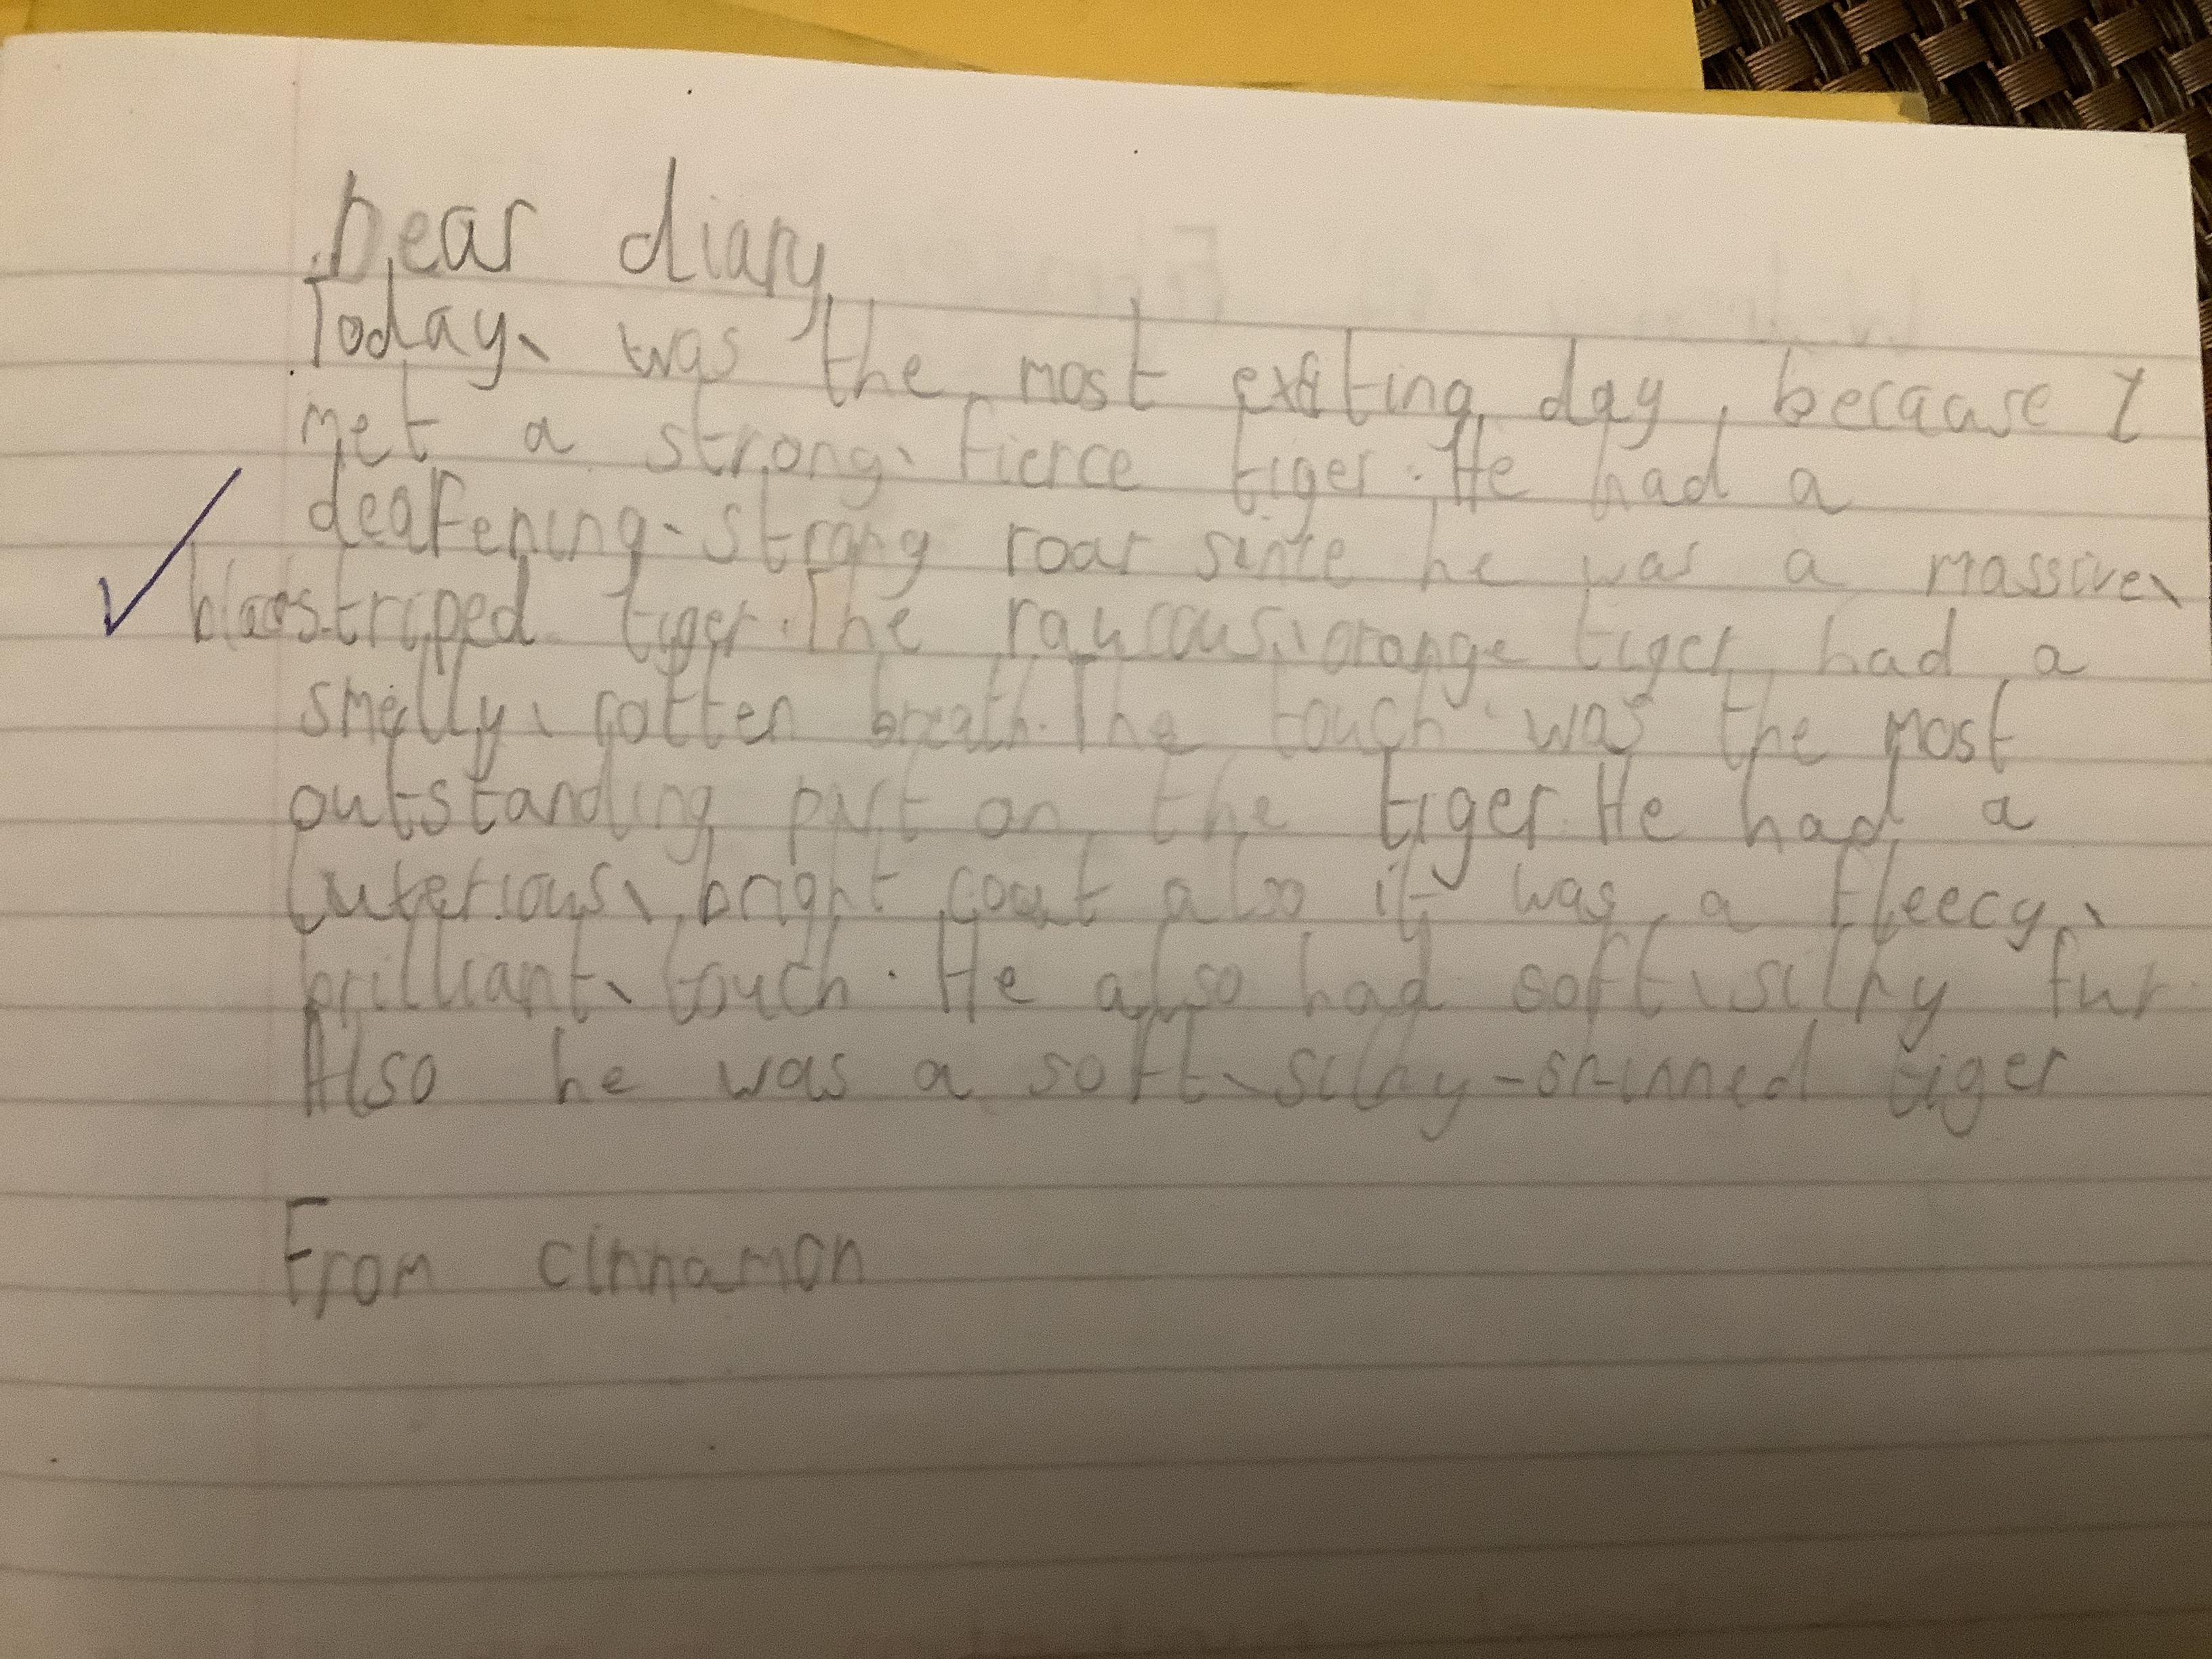 Dear diary,
Today, was the most exiting day, because I
met a strong, fierce tiger. He had a
deafening, strong roar since he was a massive,
striped tiger. The raucous, orange tiger had a
smelly, rotten breath. The touch was the most
outstanding part on the tiger. He had a
luxerious, bright coat also it was a fleecy,
brilliant, touch. He also had soft, silky fur.
Also he was a soft, silky-skinned tiger
From cinnamon